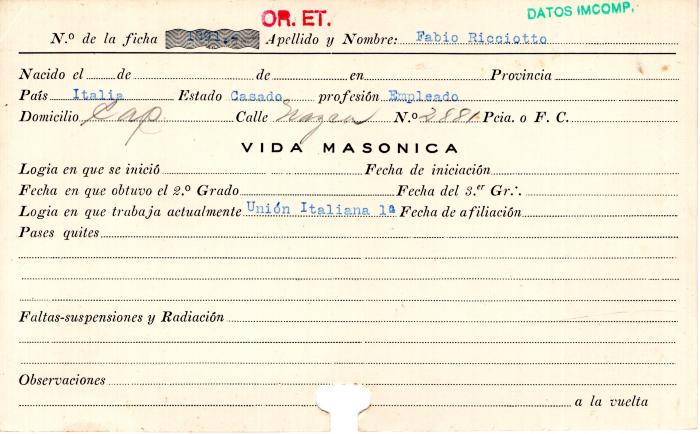 OR. ET.
DATOS IMCOMP.
N.º de la ficha Apellido y Nombre: Fabio Ricciotto
Nacido el de de en Provincia
País Italia Estado Casado profesión Empleado
Domicilio Cap Calle Nazca N.º 2881 Pcia. o F. C.
VIDA MASONICA
Logia en que se inició Fecha de iniciación
Fecha en que obtuvo el 2.º Grado Fecha del 3.er Gr∴
Logia en que trabaja actualmente Unión Italiana 1ª Fecha de afiliación
Pases quites
Faltas-suspensiones y Radiación
Observaciones
a la vuelta